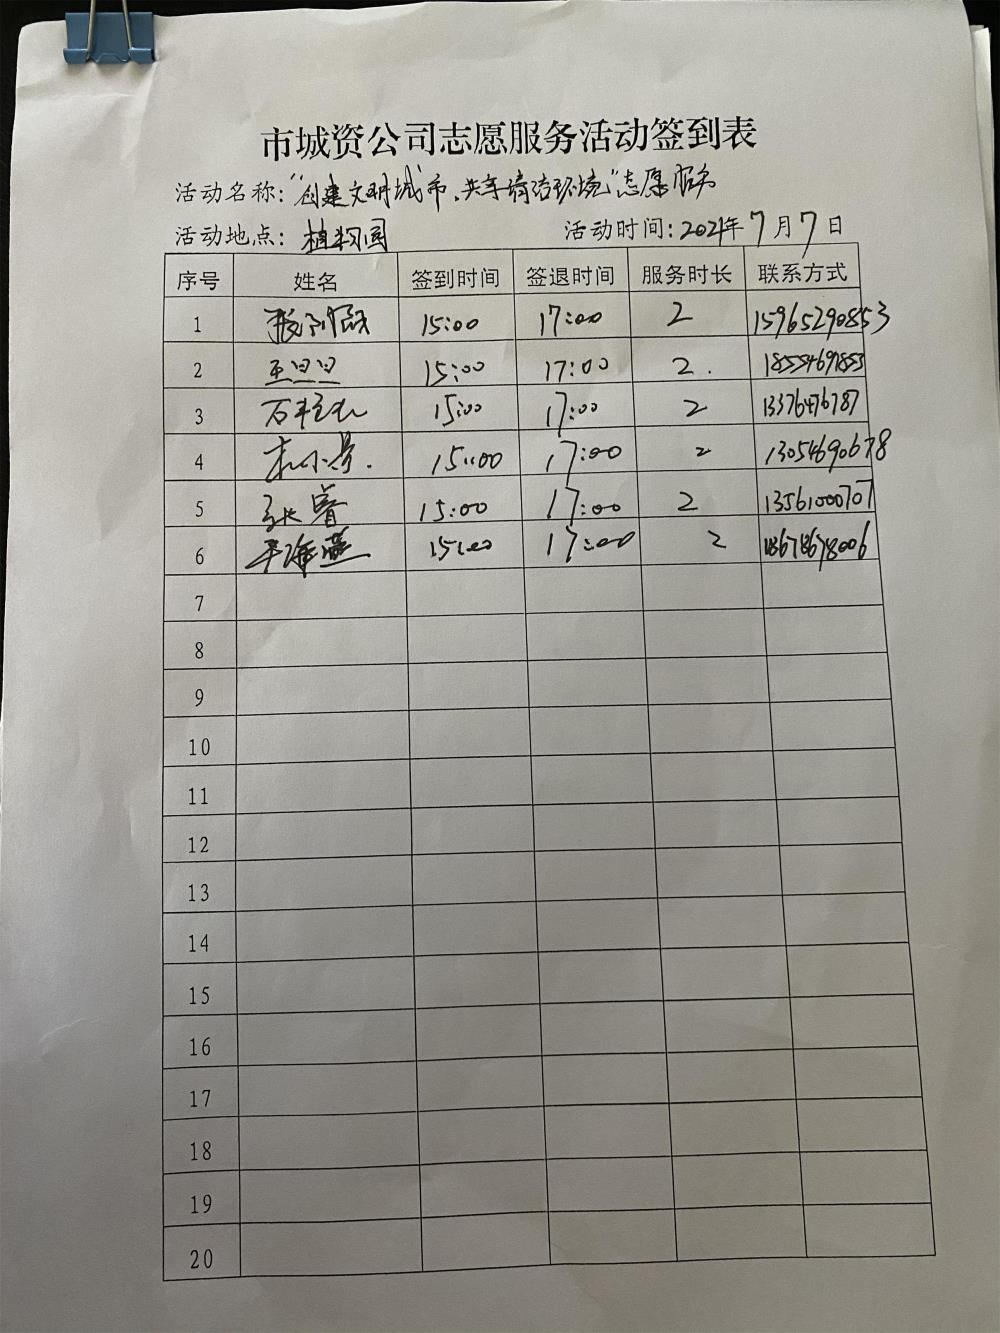 市城资公司志愿服务活动签到表
活动名称：“创建文明城市、共享清洁环境”志愿服务
活动地点：植物园 活动时间：2021年7月7日
序号 姓名 签到时间 签退时间 服务时长 联系方式
1 15:00 17:00 2 15965290853
2 王旦旦 15:00 17:00 2. 18554691853
3 15:00 17:00 2 13376476787
4 15:00 17:00 2 13054690678
5 张睿 15:00 17:00 2 13561000707
6 15:00 17:00 2 18678678006
7
8
9
10
11
12
13
14
15
16
17
18
19
20